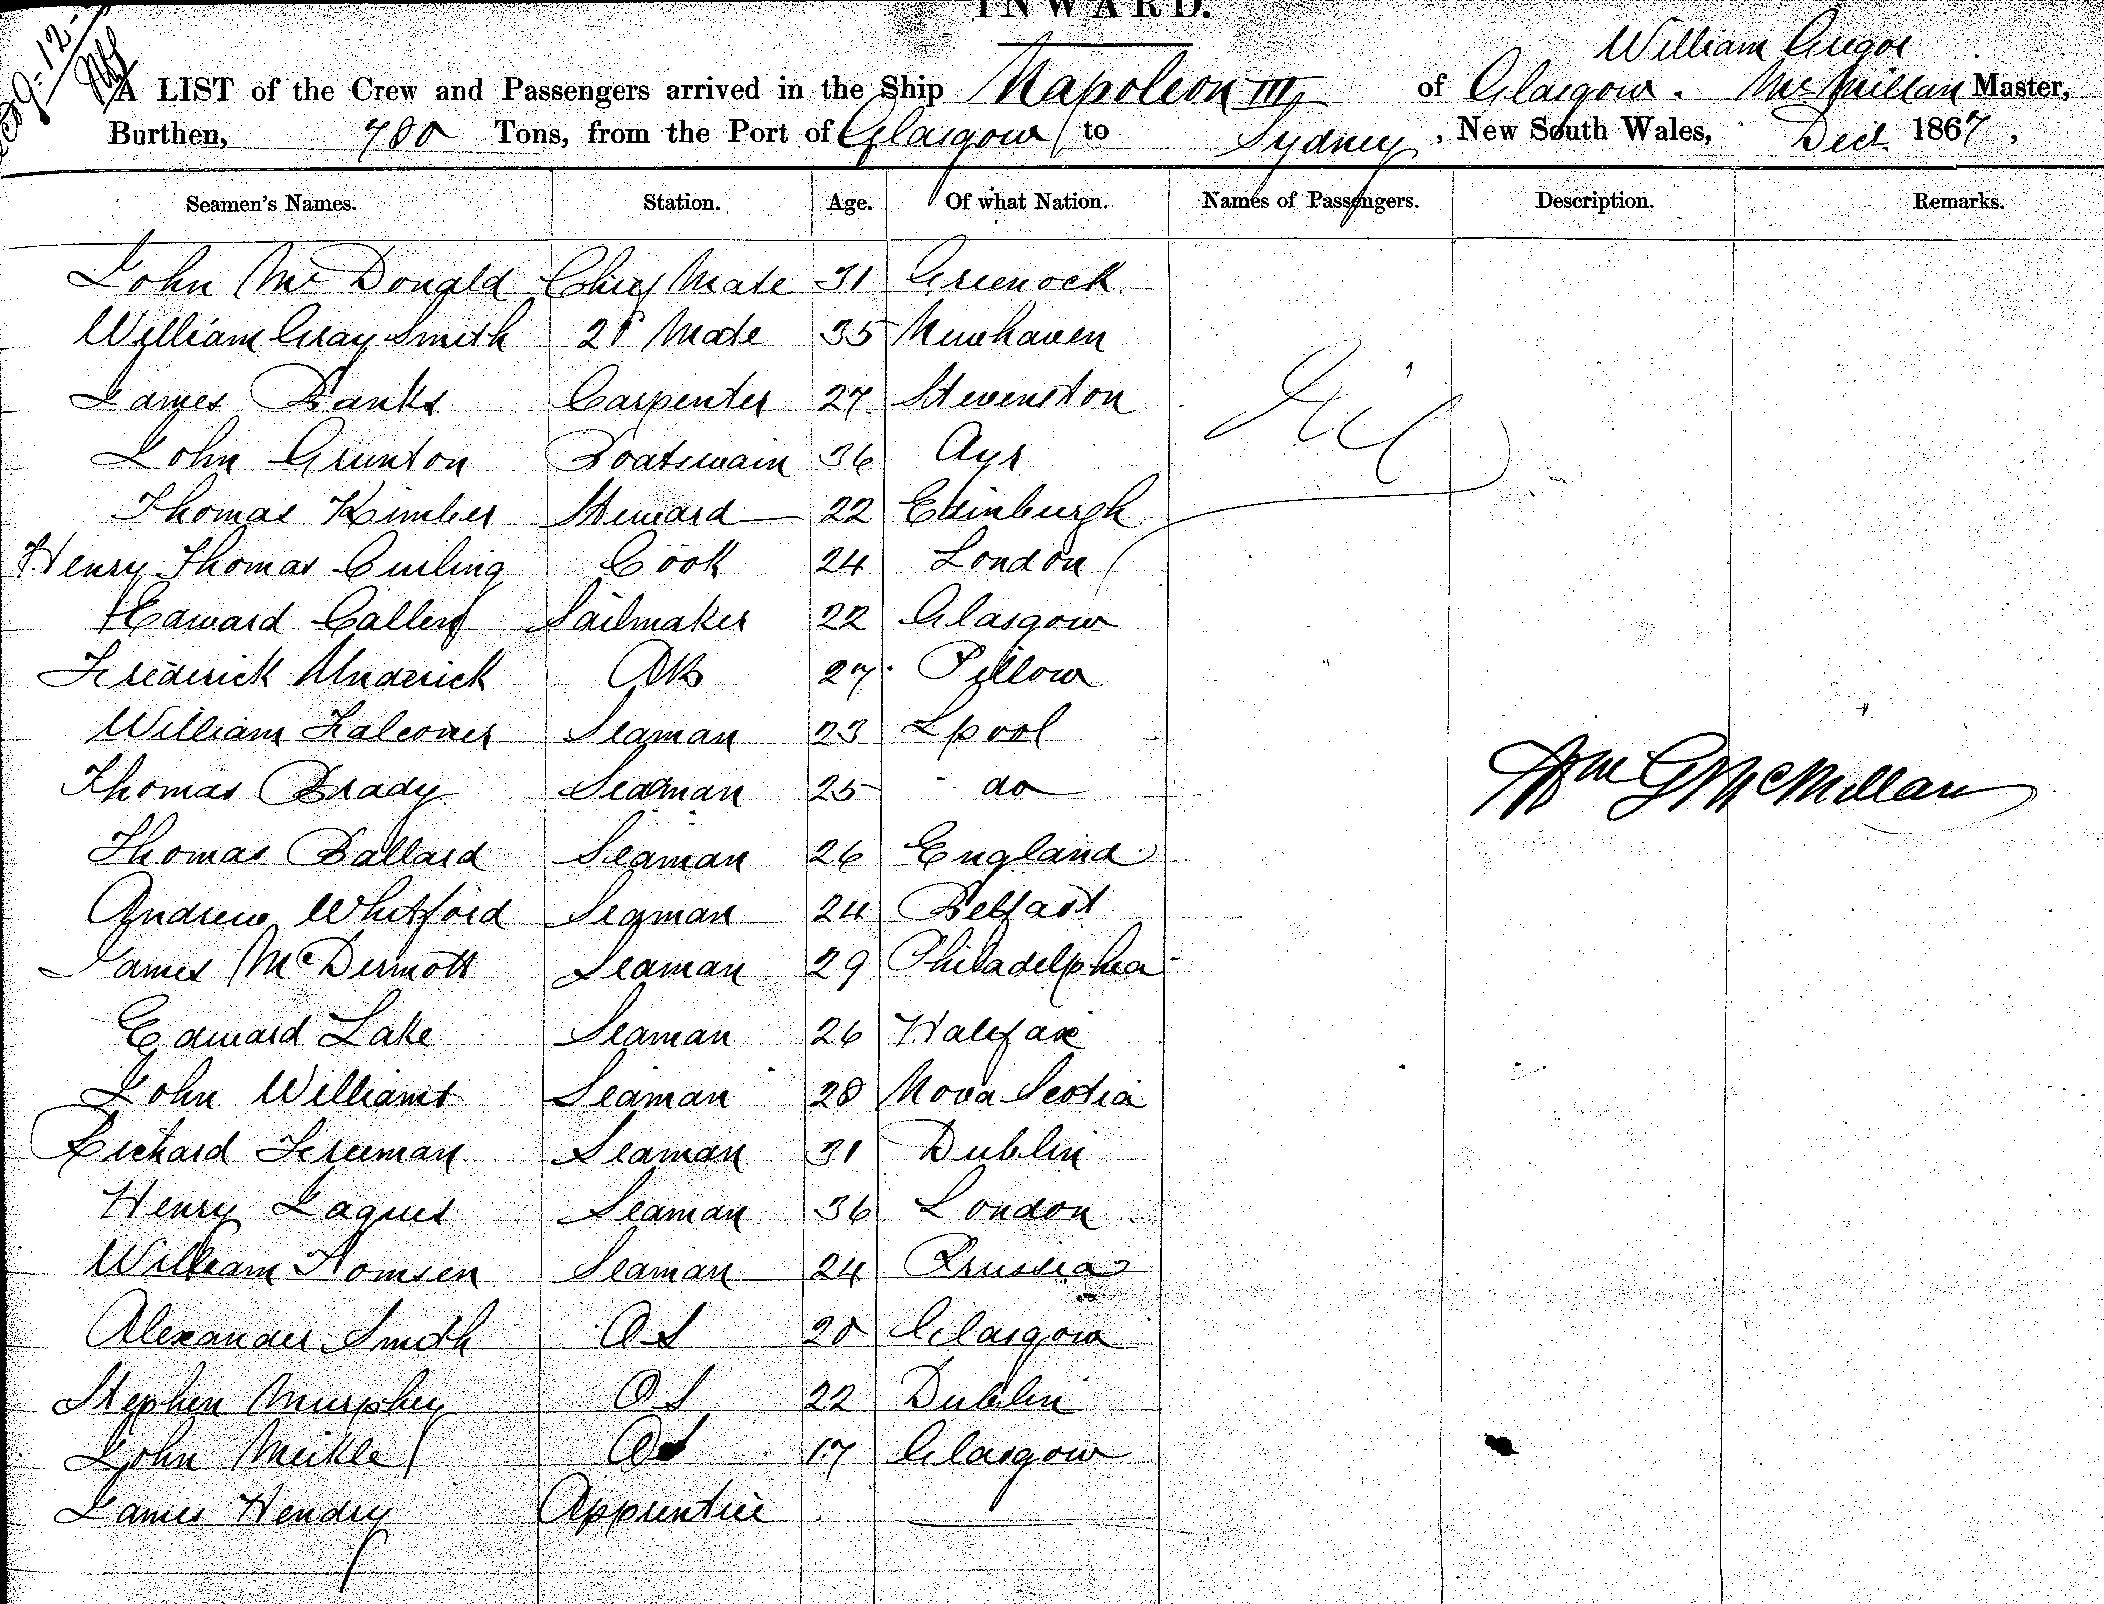 INWARD.
William Gregor
A LIST of the Crew and Passengers arrived in the Ship Napoleon III of Glasgow. McMillan Master,
Burthen, 780 Tons, from the Port of Glasgow to Sydney, New South Wales, Dec. 1867.
Seamen's Names. Station. Age. Of what Nation. Names of Passengers. Description. Remarks.
John McDonald Chief Mate 31 Greenock
William Gray Smith 2d Mate 35 Newhaven
James Banks Carpenter 27 Stevenston
Nil
John Grunton Boatswain 36 Ayr
Thomas Kimber Steward 22 Edinburgh
Henry Thomas Curling Cook 24 London
Edward Callen Sailmaker 22 Glasgow
Frederick Underick AB 27 Pillow
William Falconer Seaman 23 Lpool
Thomas Brady Seaman 25 do
Wm G McMillan
Thomas Ballard Seaman 26 England
Andrew Whitford Seaman 24 Belfast
James McDermott Seaman 29 Philadelphia
Edward Lake Seaman 26 Halifax
John Williams Seaman 28 Nova Scotia
Richard Freeman Seaman 31 Dublin
Henry Jaques Seaman 36 London
William Homsen Seaman 24 Prussia
Alexander Smith OS 20 Glasgow
Stephen Murphey OS 22 Dublin
John Meikle OS 17 Glasgow
James Hendry Apprentice